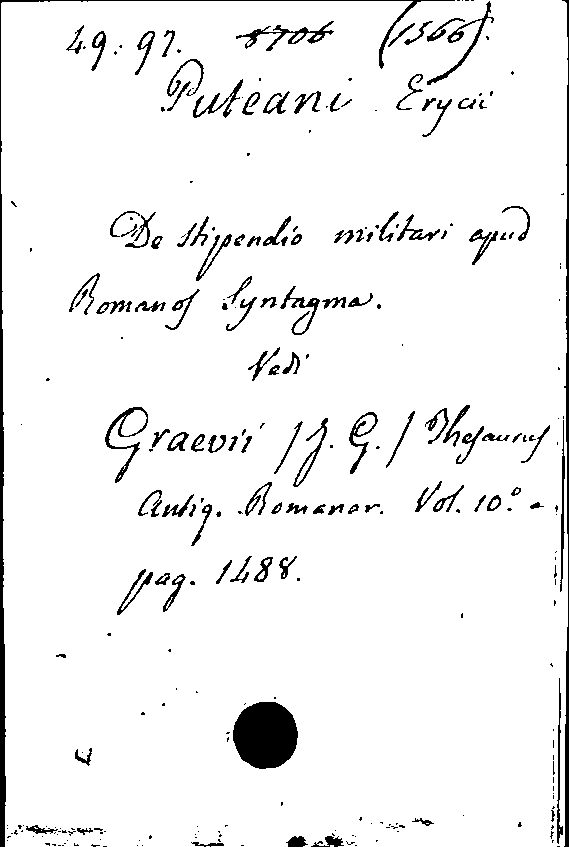 49. 97. 8706 (1566).
Puteani Erycii
De stipendio militari apud
Romanos Syntagma.
Vedi
Graevii /J. G./ Thesaurus
Antiq. Romanar. Vol. 10.º
pag. 1488.